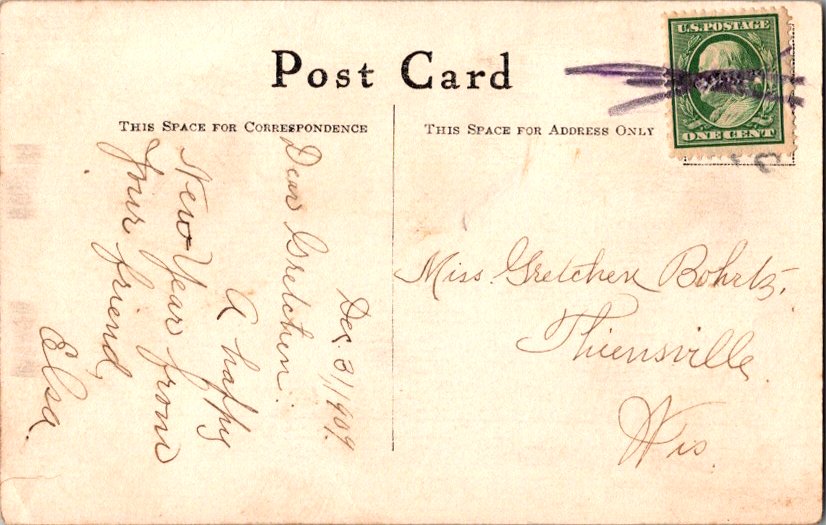 U.S. POSTAGE
ONE CENT
Post Card
THIS SPACE FOR CORRESPONDENCE
THIS SPACE FOR ADDRESS ONLY
Dec. 31, 1909.
Dear Gretchen:
A happy
New Year from
Your friend,
Elsa.
Miss. Gretchen Bohrtz,
Thiensville,
Wis.